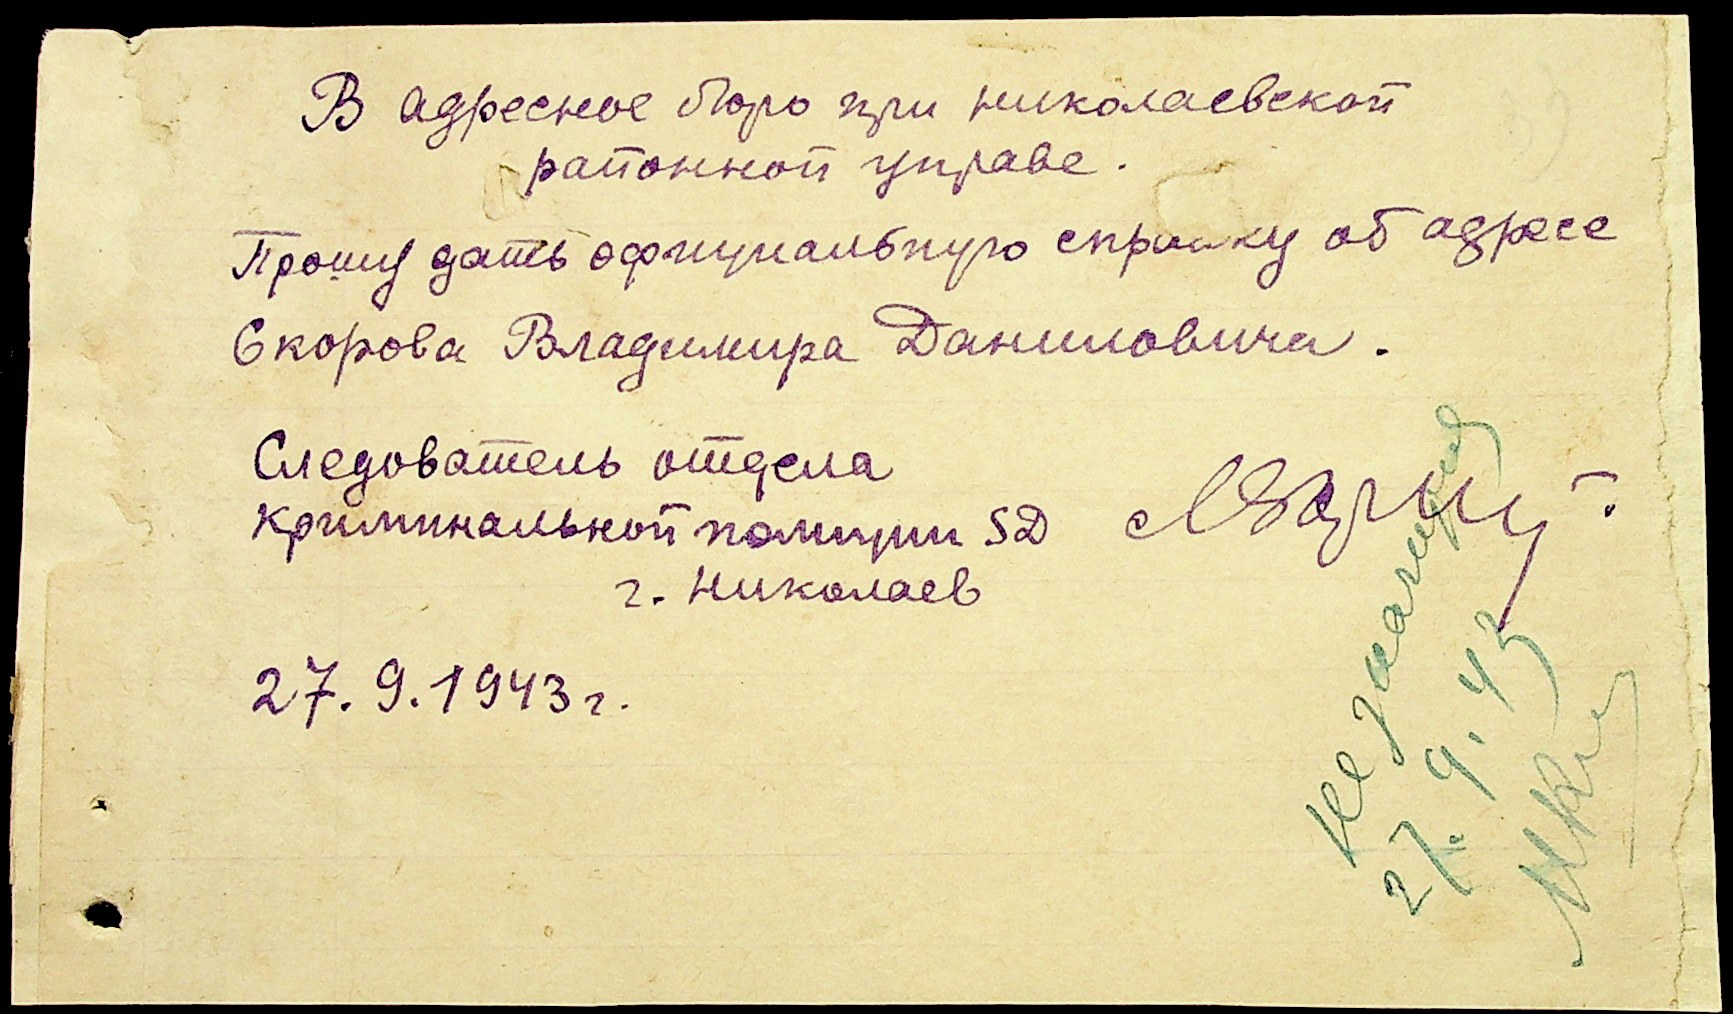 В адресное бюро при николаевской
районной управе.
Прошу дать официальную справку об адресе
Скорова Владимира Даниловича.
Следователь отдела
криминальной полиции SD
г. Николаев
27.9.1943 г.
Не значится
27.9.43